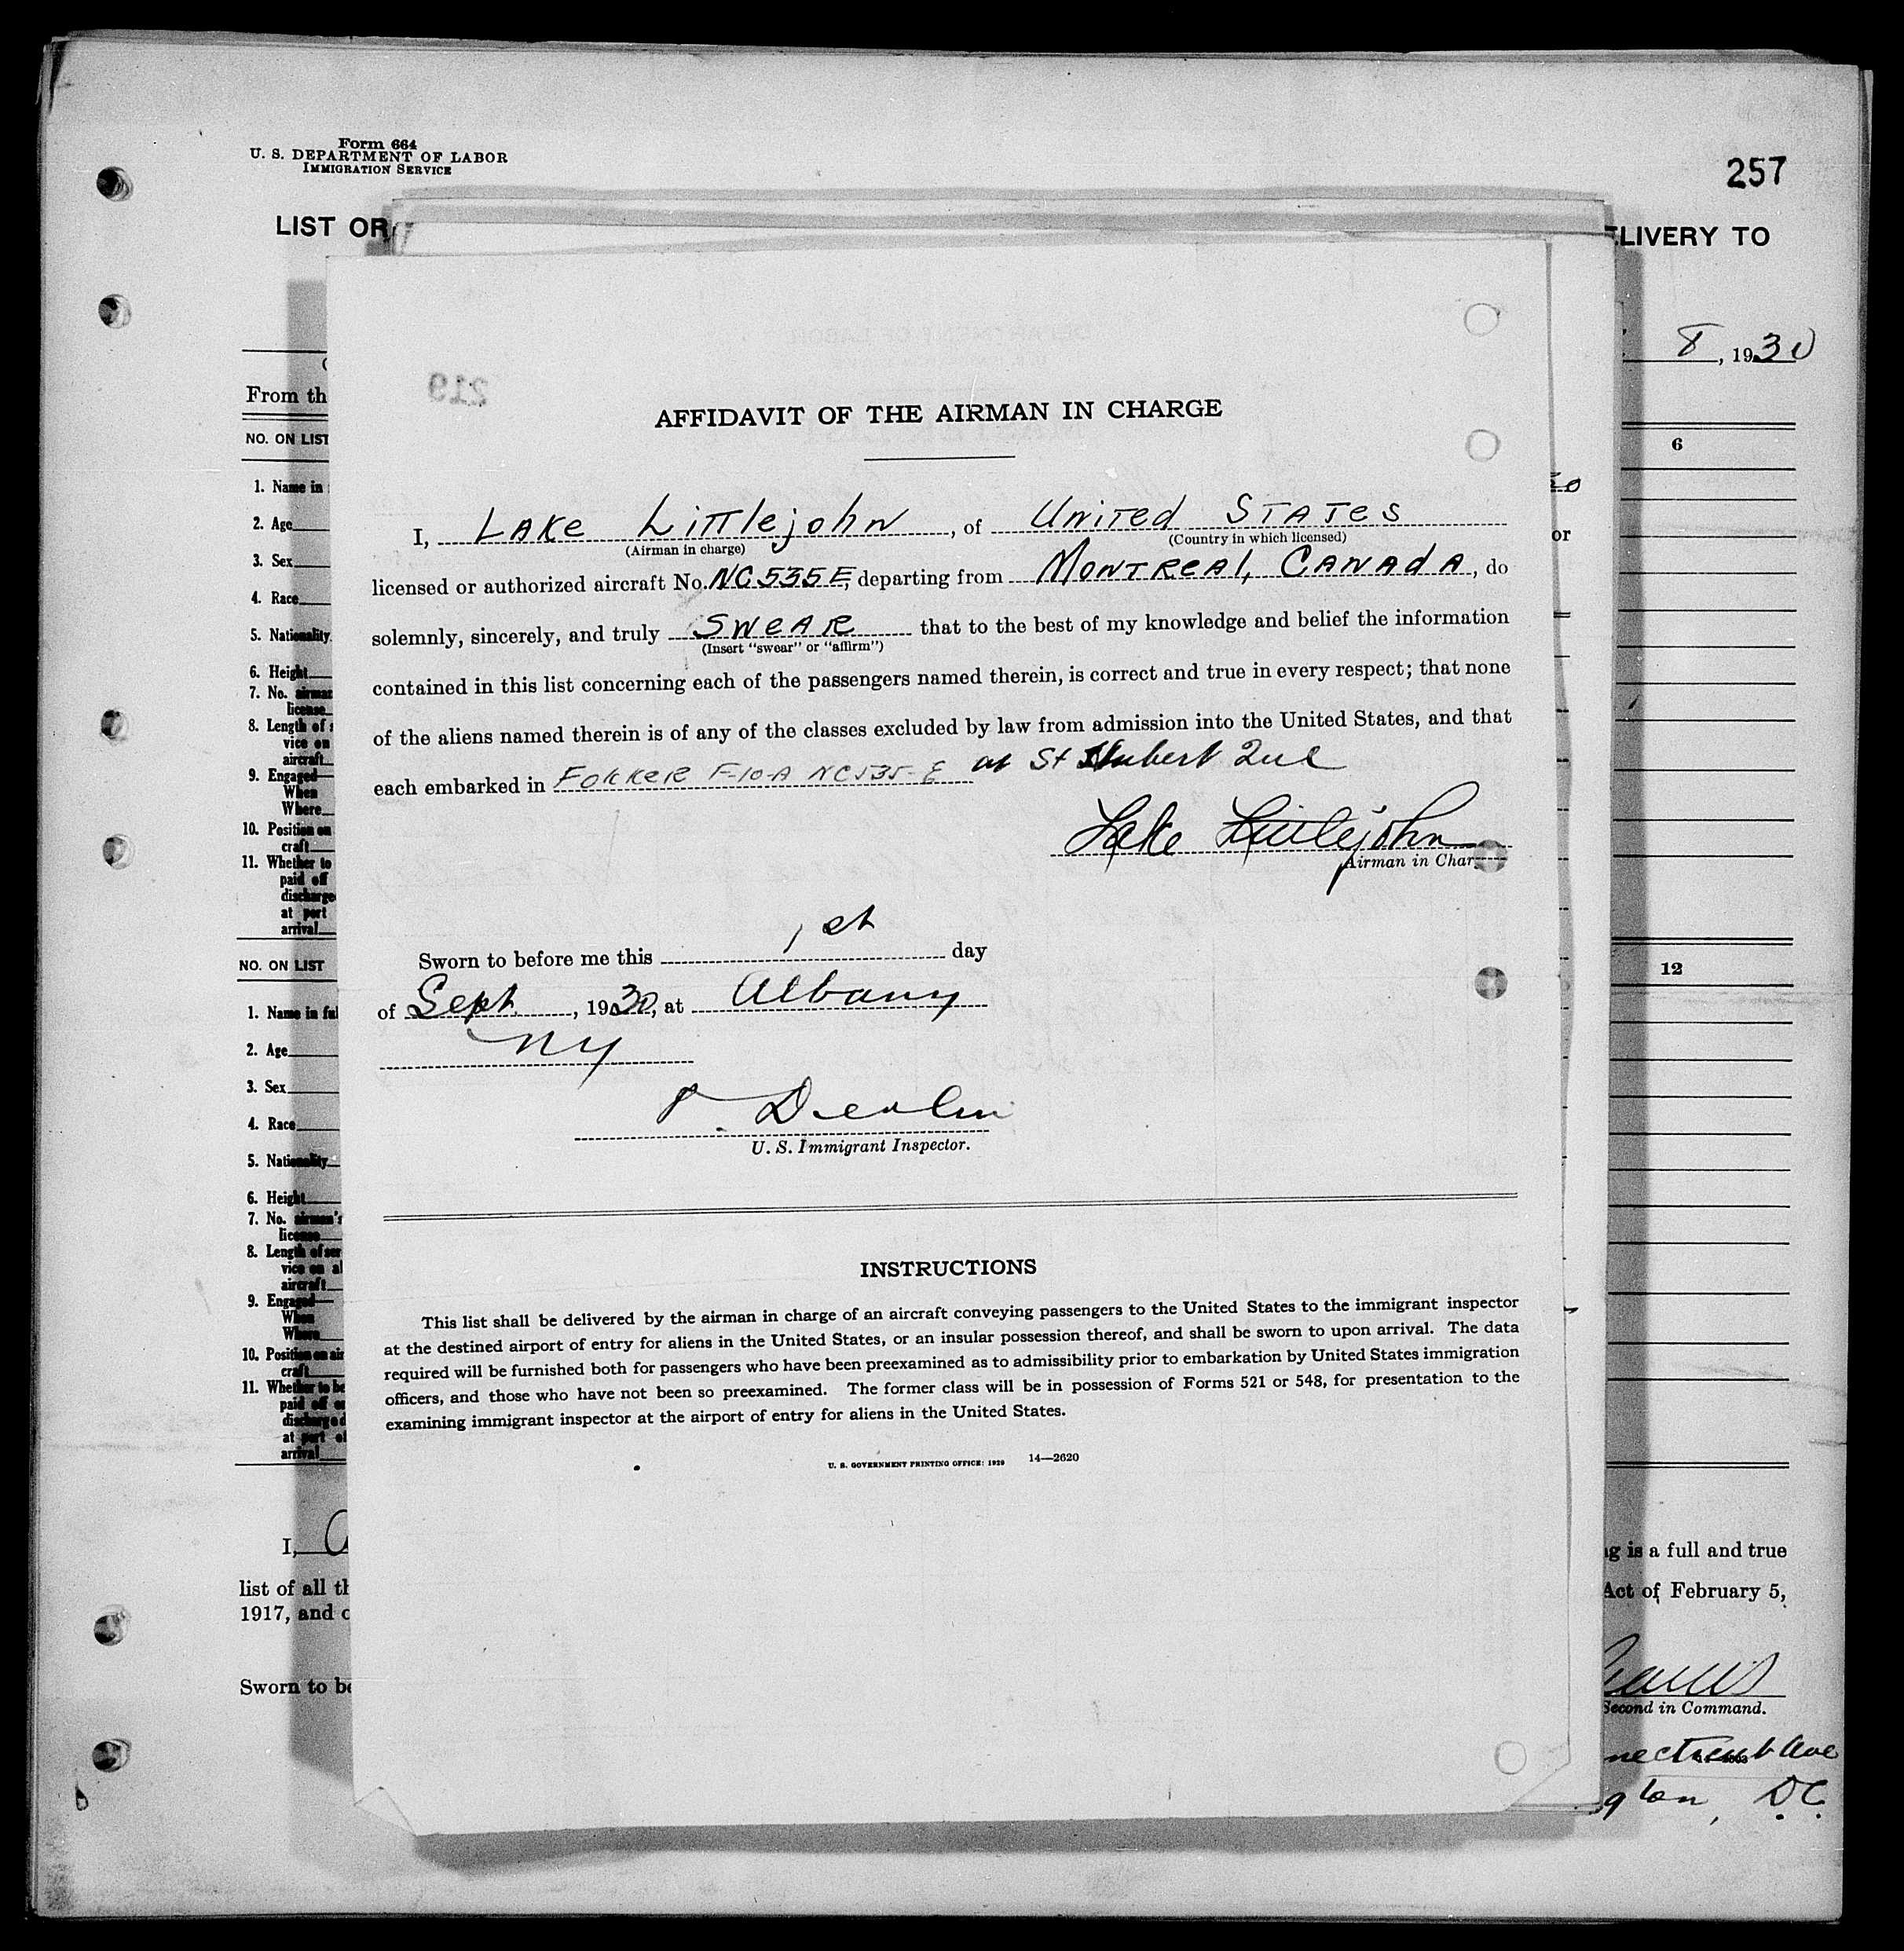 Form 664
U. S. DEPARTMENT OF LABOR
IMMIGRATION SERVICE
257
LIST OR
ELIVERY TO
8, 1930
From th
NO. ON LIST
6
1. Name in
2. Age
3. Sex
4. Race
5. Nationality
6. Height
7. No. airman
license
8. Length of s
vice on
aircraft
9. Engaged—
When
Where
10. Position on
craft
11. Whether to
paid off
discharge
at port
arrival
or
219
AFFIDAVIT OF THE AIRMAN IN CHARGE
I, LAKE LITTLEJOHN, of UNITED STATES
(Airman in charge) (Country in which licensed)
licensed or authorized aircraft No. NC535E, departing from MONTREAL, CANADA, do
solemnly, sincerely, and truly SWEAR that to the best of my knowledge and belief the information
(Insert "swear" or "affirm")
contained in this list concerning each of the passengers named therein, is correct and true in every respect; that none
of the aliens named therein is of any of the classes excluded by law from admission into the United States, and that
each embarked in FOKKER F-10-A NC535-E at St Hubert Que
Lake Littlejohn
Airman in Char
Sworn to before me this 1st day
of Sept, 1930, at Albany
NY
P. Devlin
U. S. Immigrant Inspector.
INSTRUCTIONS
This list shall be delivered by the airman in charge of an aircraft conveying passengers to the United States to the immigrant inspector
at the destined airport of entry for aliens in the United States, or an insular possession thereof, and shall be sworn to upon arrival. The data
required will be furnished both for passengers who have been preexamined as to admissibility prior to embarkation by United States immigration
officers, and those who have not been so preexamined. The former class will be in possession of Forms 521 or 548, for presentation to the
examining immigrant inspector at the airport of entry for aliens in the United States.
U. S. GOVERNMENT PRINTING OFFICE: 1929 14—2620
NO. ON LIST
12
1. Name in ful
2. Age
3. Sex
4. Race
5. Nationality
6. Height
7. No. airman's
license
8. Length of ser
vice on al
aircraft
9. Engaged—
When
Where
10. Position on air
craft
11. Whether to be
paid off or
discharged
at port of
arrival
I,
ng is a full and true
list of all th
Act of February 5,
1917, and c
Sworn to be
Second in Command.
necticut Ave
gton, D.C.